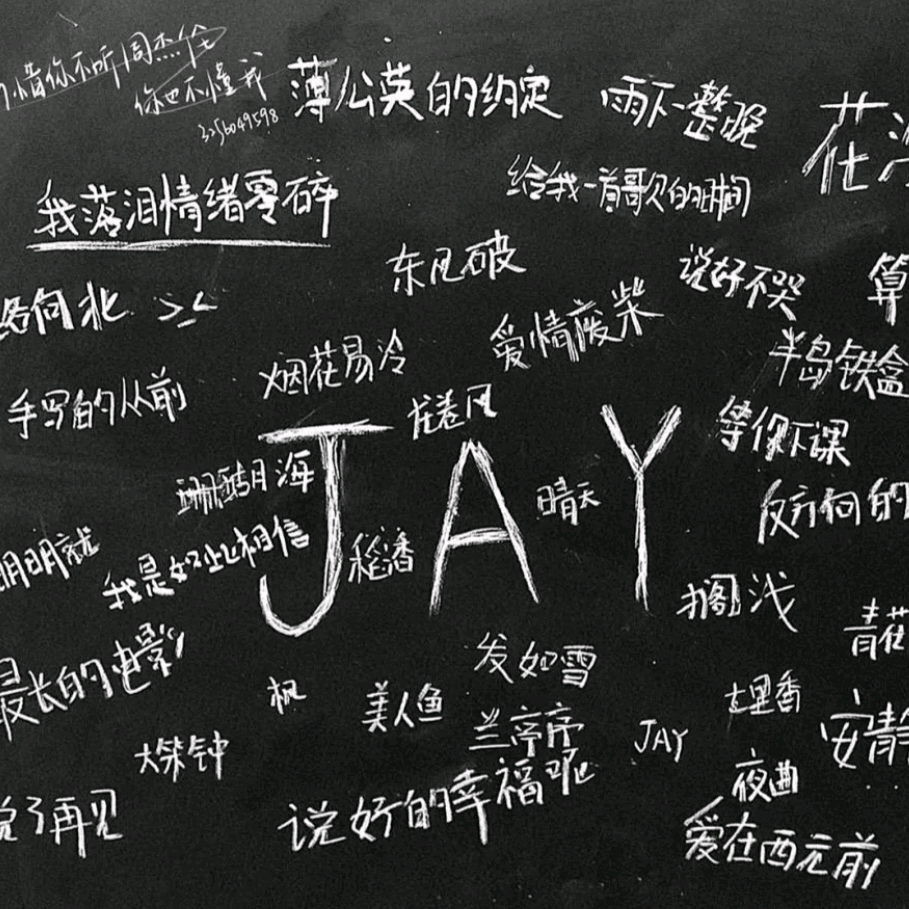 惜你不听周杰伦
你也不懂我
3256049598
薄公英的约定
雨下一整晚
花海
给我一首歌的时间
我落泪情绪零碎
东风破
说好不哭
算
路向北 ><
爱情废柴
半岛铁盒
烟花易冷
手写的从前
龙卷风
等你下课
JAY
珊瑚海
晴天
反方向的
明明就
我是如此相信
稻香
搁浅
青花
最长的电影
发如雪
枫
美人鱼
七里香
兰亭序
JAY
安静
大笨钟
夜曲
说了再见
说好的幸福呢
爱在西元前